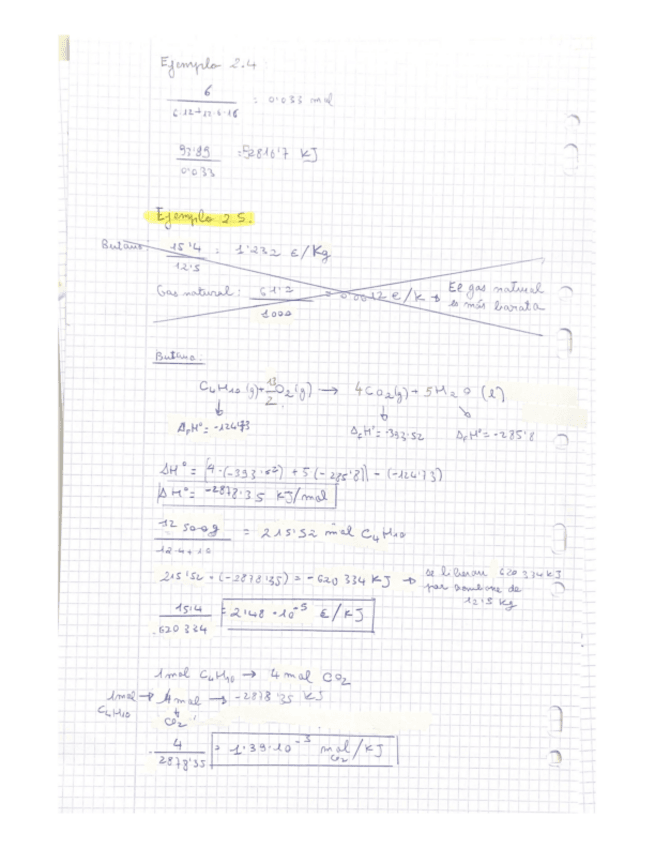 Ejemplo 2.4
6
6·12+12+6·16 = 0'033 mol
93'89
0'033 = 2816'7 KJ
Ejemplo 2.5.
Butano: 15'4
12'5 = 1'232 €/Kg
Gas natural: 61'2
1000 = 0'0012 €/K → El gas natural
es más barata
Butano:
C4H10 (g) + 13/2 O2 (g) → 4CO2(g) + 5H2O (l)
ΔfH° = -124'73 ΔfH° = -393'52 ΔfH° = -285'8
ΔH° = [4·(-393'52) + 5(-285'8)] - (-124'73)
ΔH° = -2878'35 KJ/mol
12 500g
12·4+10 = 215'52 mol C4H10
215'52 · (-2878'35) = -620 334 KJ → se liberan 620 334 KJ
por bombona de
12'5 Kg
15'4
620 334 = 2'48 · 10⁻⁵ €/KJ
1 mol C4H10 → 4 mol CO2
1 mol → 4 mol → -2878'35 KJ
C4H10 CO2
4
2878'35 = 1'39·10⁻³ mol CO2/KJ